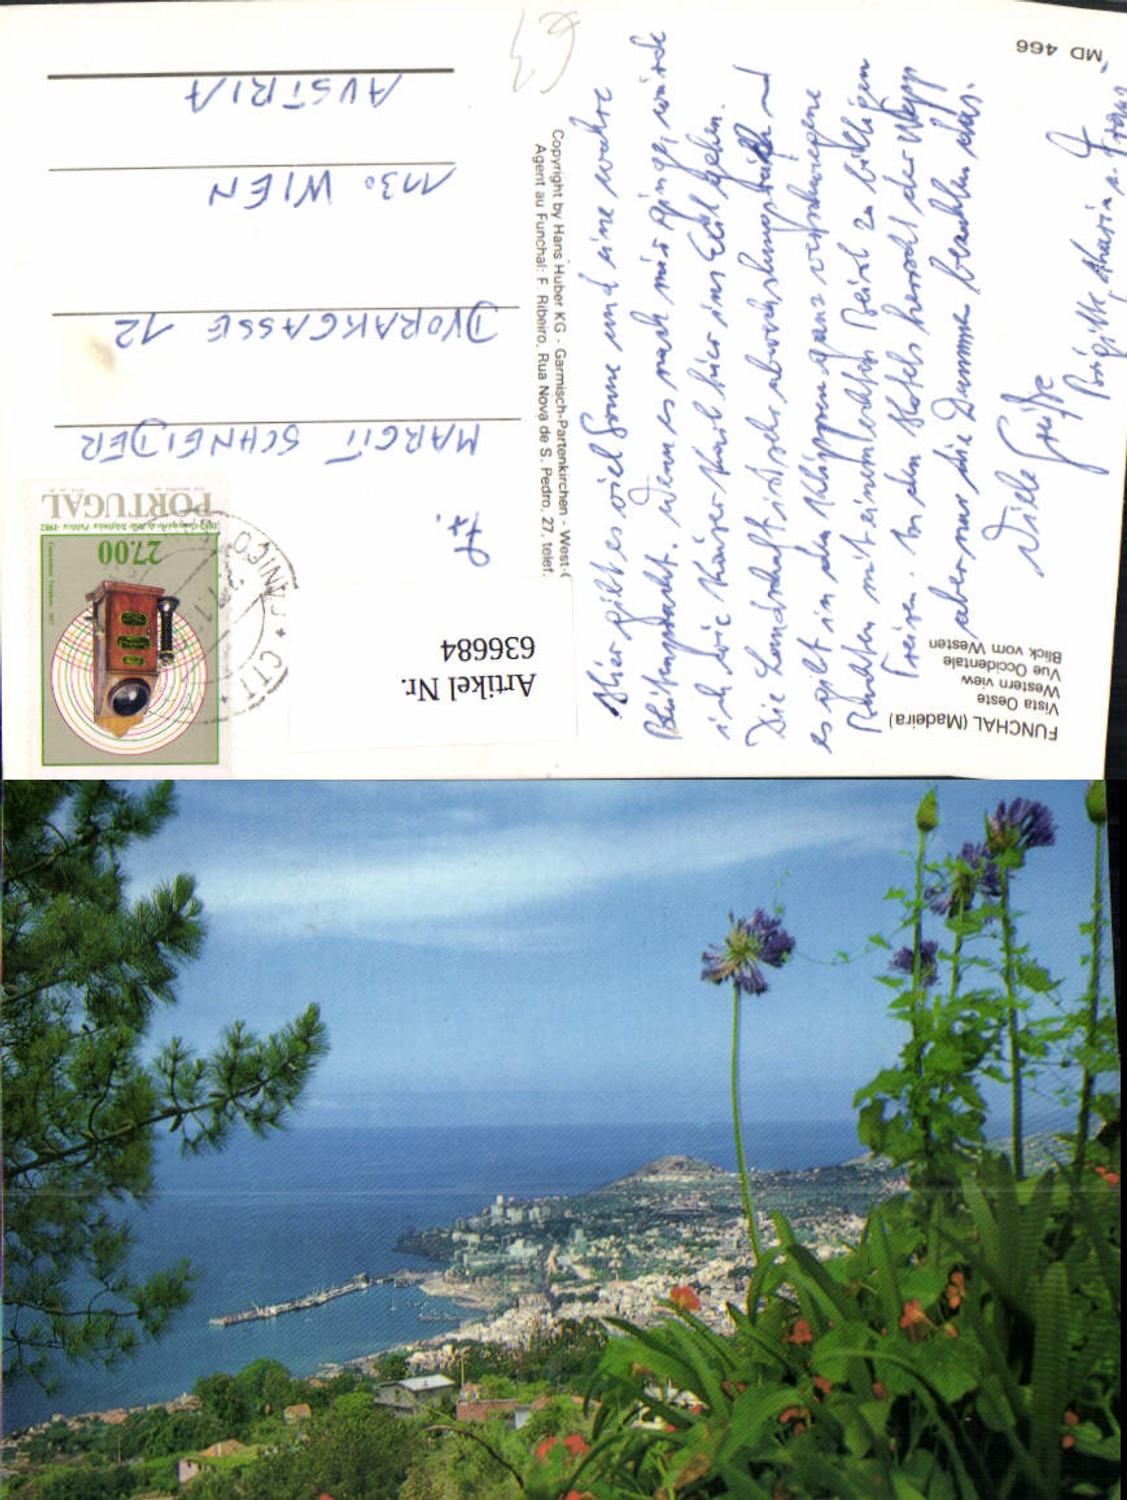 FUNCHAL (Madeira)
Vista Oeste
Western view
Vue Occidentale
Blick vom Westen
MD 466
Hier gibt es viel Sonne und eine wahre
Blütenpracht. Wenn es nach mir ginge, würde
ich wie Kaiser Karl hier ins Exil gehen.
Die Landschaft ist sehr abwechslungsreich und
es gibt in den Klippen ganz verschwiegene
Buchten mit einem echten Beisl zu billigen
Preisen. In den Hotels herrscht der Nepp
aber nur die Dummen bezahlen das.
Viele Grüße
Brigitte, Maria u. Franz
Copyright by Hans Huber KG - Garmisch-Partenkirchen - West-
Agent au Funchal: F. Ribeiro, Rua Nova de S. Pedro, 27, telef.
PORTUGAL
27.00
PANIÇO
CTT
Artikel Nr.
636684
Fr.
MARGIT SCHNEIDER
DVORAKGASSE 12
1130 WIEN
AUSTRIA